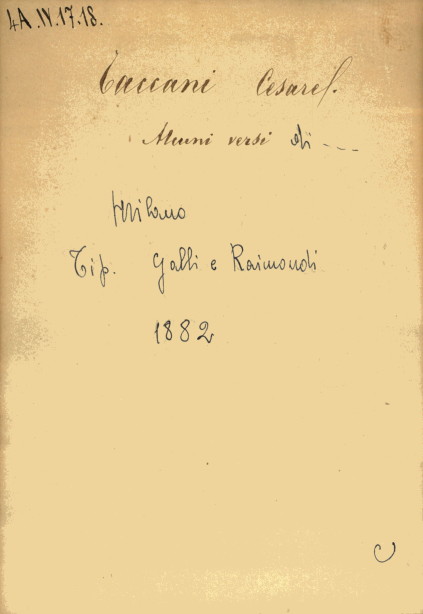 4A.IV.17.18.
Taccani Cesare.
Alcuni versi di ---
Milano
Tip. Galli e Raimondi
1882
C